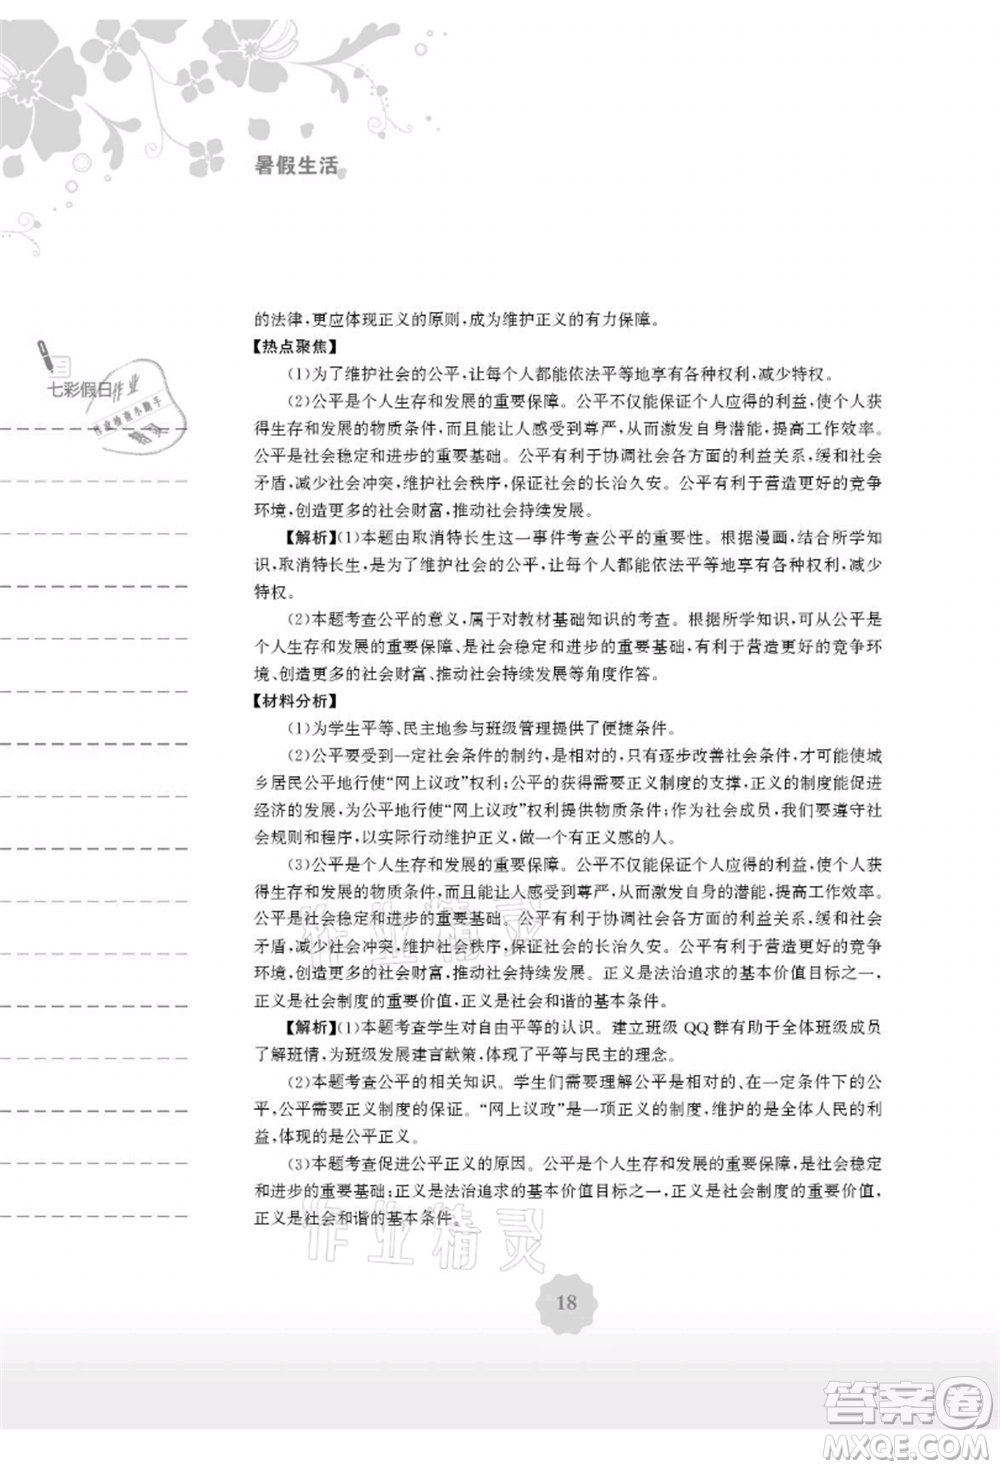 暑假生活
七彩假日
作业
作业检查小助手
的法律,更应体现正义的原则,成为维护正义的有力保障。
【热点聚焦】
(1)为了维护社会的公平,让每个人都能依法平等地享有各种权利,减少特权。
(2)公平是个人生存和发展的重要保障。公平不仅能保证个人应得的利益,使个人获
得生存和发展的物质条件,而且能让人感受到尊严,从而激发自身潜能,提高工作效率。
公平是社会稳定和进步的重要基础。公平有利于协调社会各方面的利益关系,缓和社会
矛盾,减少社会冲突,维护社会秩序,保证社会的长治久安。公平有利于营造更好的竞争
环境,创造更多的社会财富,推动社会持续发展。
【解析】(1)本题由取消特长生这一事件考查公平的重要性。根据漫画,结合所学知
识,取消特长生,是为了维护社会的公平,让每个人都能依法平等地享有各种权利,减少
特权。
(2)本题考查公平的意义,属于对教材基础知识的考查。根据所学知识,可从公平是
个人生存和发展的重要保障、是社会稳定和进步的重要基础,有利于营造更好的竞争环
境、创造更多的社会财富、推动社会持续发展等角度作答。
【材料分析】
(1)为学生平等、民主地参与班级管理提供了便捷条件。
(2)公平要受到一定社会条件的制约,是相对的,只有逐步改善社会条件,才可能使城
乡居民公平地行使“网上议政”权利;公平的获得需要正义制度的支撑,正义的制度能促进
经济的发展,为公平地行使“网上议政”权利提供物质条件;作为社会成员,我们要遵守社
会规则和程序,以实际行动维护正义,做一个有正义感的人。
(3)公平是个人生存和发展的重要保障。公平不仅能保证个人应得的利益,使个人获
得生存和发展的物质条件,而且能让人感受到尊严,从而激发自身的潜能,提高工作效率。
公平是社会稳定和进步的重要基础。公平有利于协调社会各方面的利益关系,缓和社会
矛盾,减少社会冲突,维护社会秩序,保证社会的长治久安。公平有利于营造更好的竞争
环境,创造更多的社会财富,推动社会持续发展。正义是法治追求的基本价值目标之一,
正义是社会制度的重要价值,正义是社会和谐的基本条件。
【解析】(1)本题考查学生对自由平等的认识。建立班级QQ群有助于全体班级成员
了解班情,为班级发展建言献策,体现了平等与民主的理念。
(2)本题考查公平的相关知识。学生们需要理解公平是相对的、在一定条件下的公
平,公平需要正义制度的保证。“网上议政”是一项正义的制度,维护的是全体人民的利
益,体现的是公平正义。
(3)本题考查促进公平正义的原因。公平是个人生存和发展的重要保障,是社会稳定
和进步的重要基础;正义是法治追求的基本价值目标之一,正义是社会制度的重要价值,
正义是社会和谐的基本条件。
作业精灵
作业精灵
18
答案圈
MXQE.COM